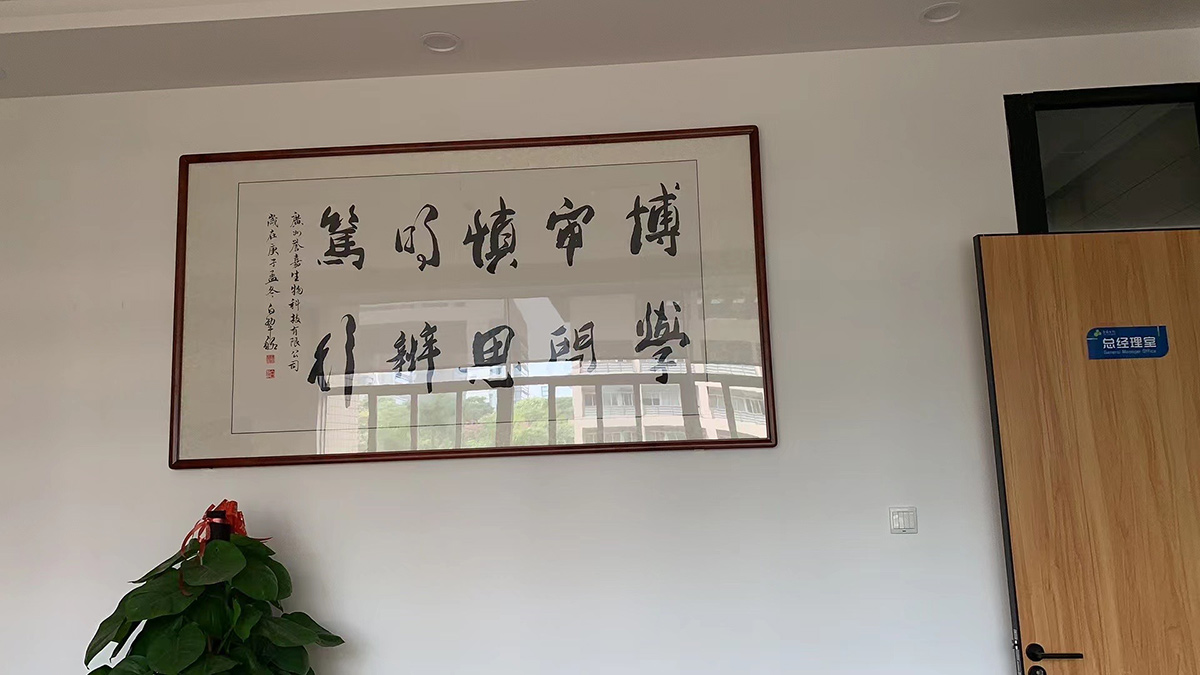 博學
審問
慎思
明辨
篤行
廣州譽嘉生物科技有限公司
歲在庚子孟冬
总经理室
General Manager Office